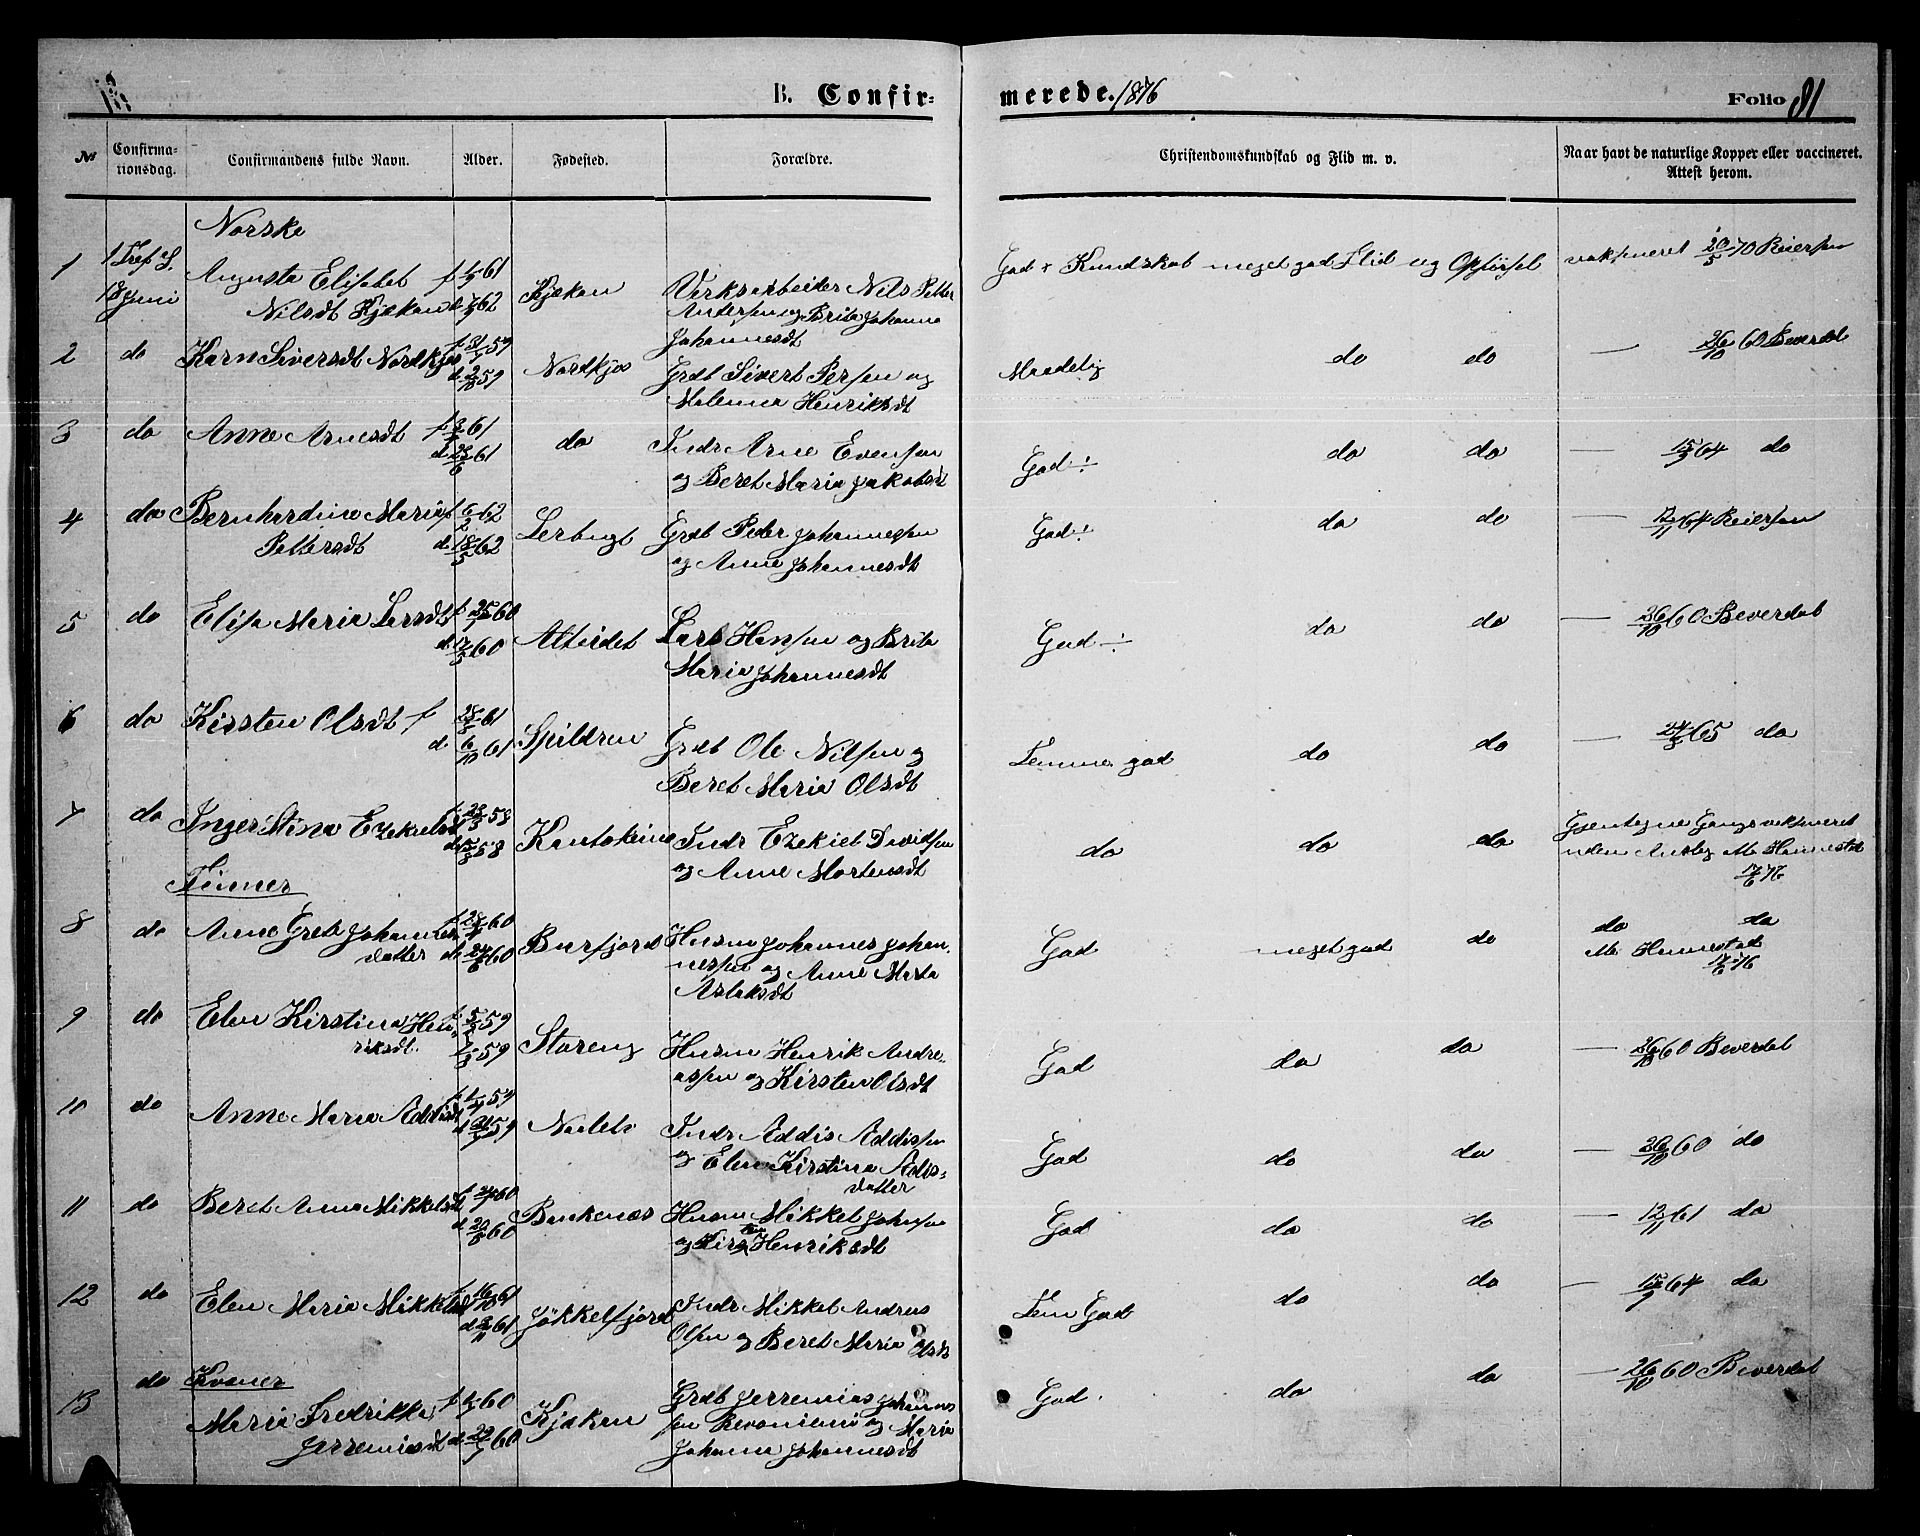 B. Confir-
merede. 1876
Folio 81
№
Confirma-
tionsdag.
Confirmandens fulde Navn.
Alder.
Fødested.
Forældre.
Christendomskundskab og Flid m. v.
Naar havt de naturlige Kopper eller vaccineret.
Attest herom.
Norske
1
18 Juni
Augusta Elisabet
Nilsdt Kjækan
f 61
d. 62
Kjækan
Verksarbeider Nils Petter
Andersen og Brita Johanna
Johannesdt
God + Kundskab meget god Flid og Opførsel
vaksineret 20/5 70 Reiersen
2 do Karn Siversdt Nordkjos
f 59
d. 59
Nordkjos
Grdb Sivert Persen og
Malenna Henriksdt
Maadelig do do
— 26/10 60 Beverdal
3 do Anne Arnesdt
f 61
d. 23/6 61
do
Indr Arne Evensen
og Beret Maria Jakobsdt
God ÷ do do
— 15/9 64 do
4 do Bernhardine Maria
Pettersdt
f 6/2 62
d. 18/5 62
Lerbugt
Grdb Peder Johannessen
og Anne Johannesdt
God ÷ do do
— 64 Reiersen
5 do Elisa Maria Larsdt
f 25/1 60
d. 60
Alteidet
Lars Hansen og Brita
Maria Johannesdt
God ÷ do do
— 26/10 60 Beverdal
6 do Kirsten Olsdt
f 28/8 61
d. 6/10 61
Spildren
Grdb Ole Nilsen og
Beret Maria Olsdt
Temme. god do do
— 65 do
7 do Inger Stina Ezekielsdt
f 23/3 58
d. 58
Kautokeino
Indr Ezekiel Davidsen
og Anne Mortensdt
do do do
Gjentagne Gange vaksineret
uden Anslag M. Hannestad
17/6 76
Finner
8 do Anne Grete Johannes
datter
f 28/4 60
d. 24/6 60
Burfjord
Husm Johannes Johan-
nessen og Anne Marta
Aslaksdt
God meget god do
do do
M. Hannestad
17/6 76
9 do Elen Kirstina Hen-
riksdt.
f 59
59
Storeng
Husm Henrik Andre-
assen og Kirsten Olsdt
God do do
— 26/10 60 Beverdal
10 do Anne Maria Addisdt
f 59
d 59
Indr Addis Addisen
og Elen Kirstina Adis-
datter
God do do
— 26/10 60 do
11 do Beret Anna Mikkelsdt
f 60
d. 60
Bankenæs
Husm Mikkel Johnsen
og Kirsten Henriksdt
God do do
— 12/11 61 do
12 do Elen Maria Mikkelsdt
f 16/10 61
d. 61
Jøkkelfjord
Indr Mikkel Andreas
Olsen og Beret Maria Olsdt
Tem God do do
— 15/9 64 do
Kvæner
13 do
Maria Fredrikka
Jerremiasdt
f 60
d. 60
Kjækan
Grdb Jerremias Johannes
sen og Maria
Johanna Johannesdt
God. do do
— 26/10 60 Beverdal